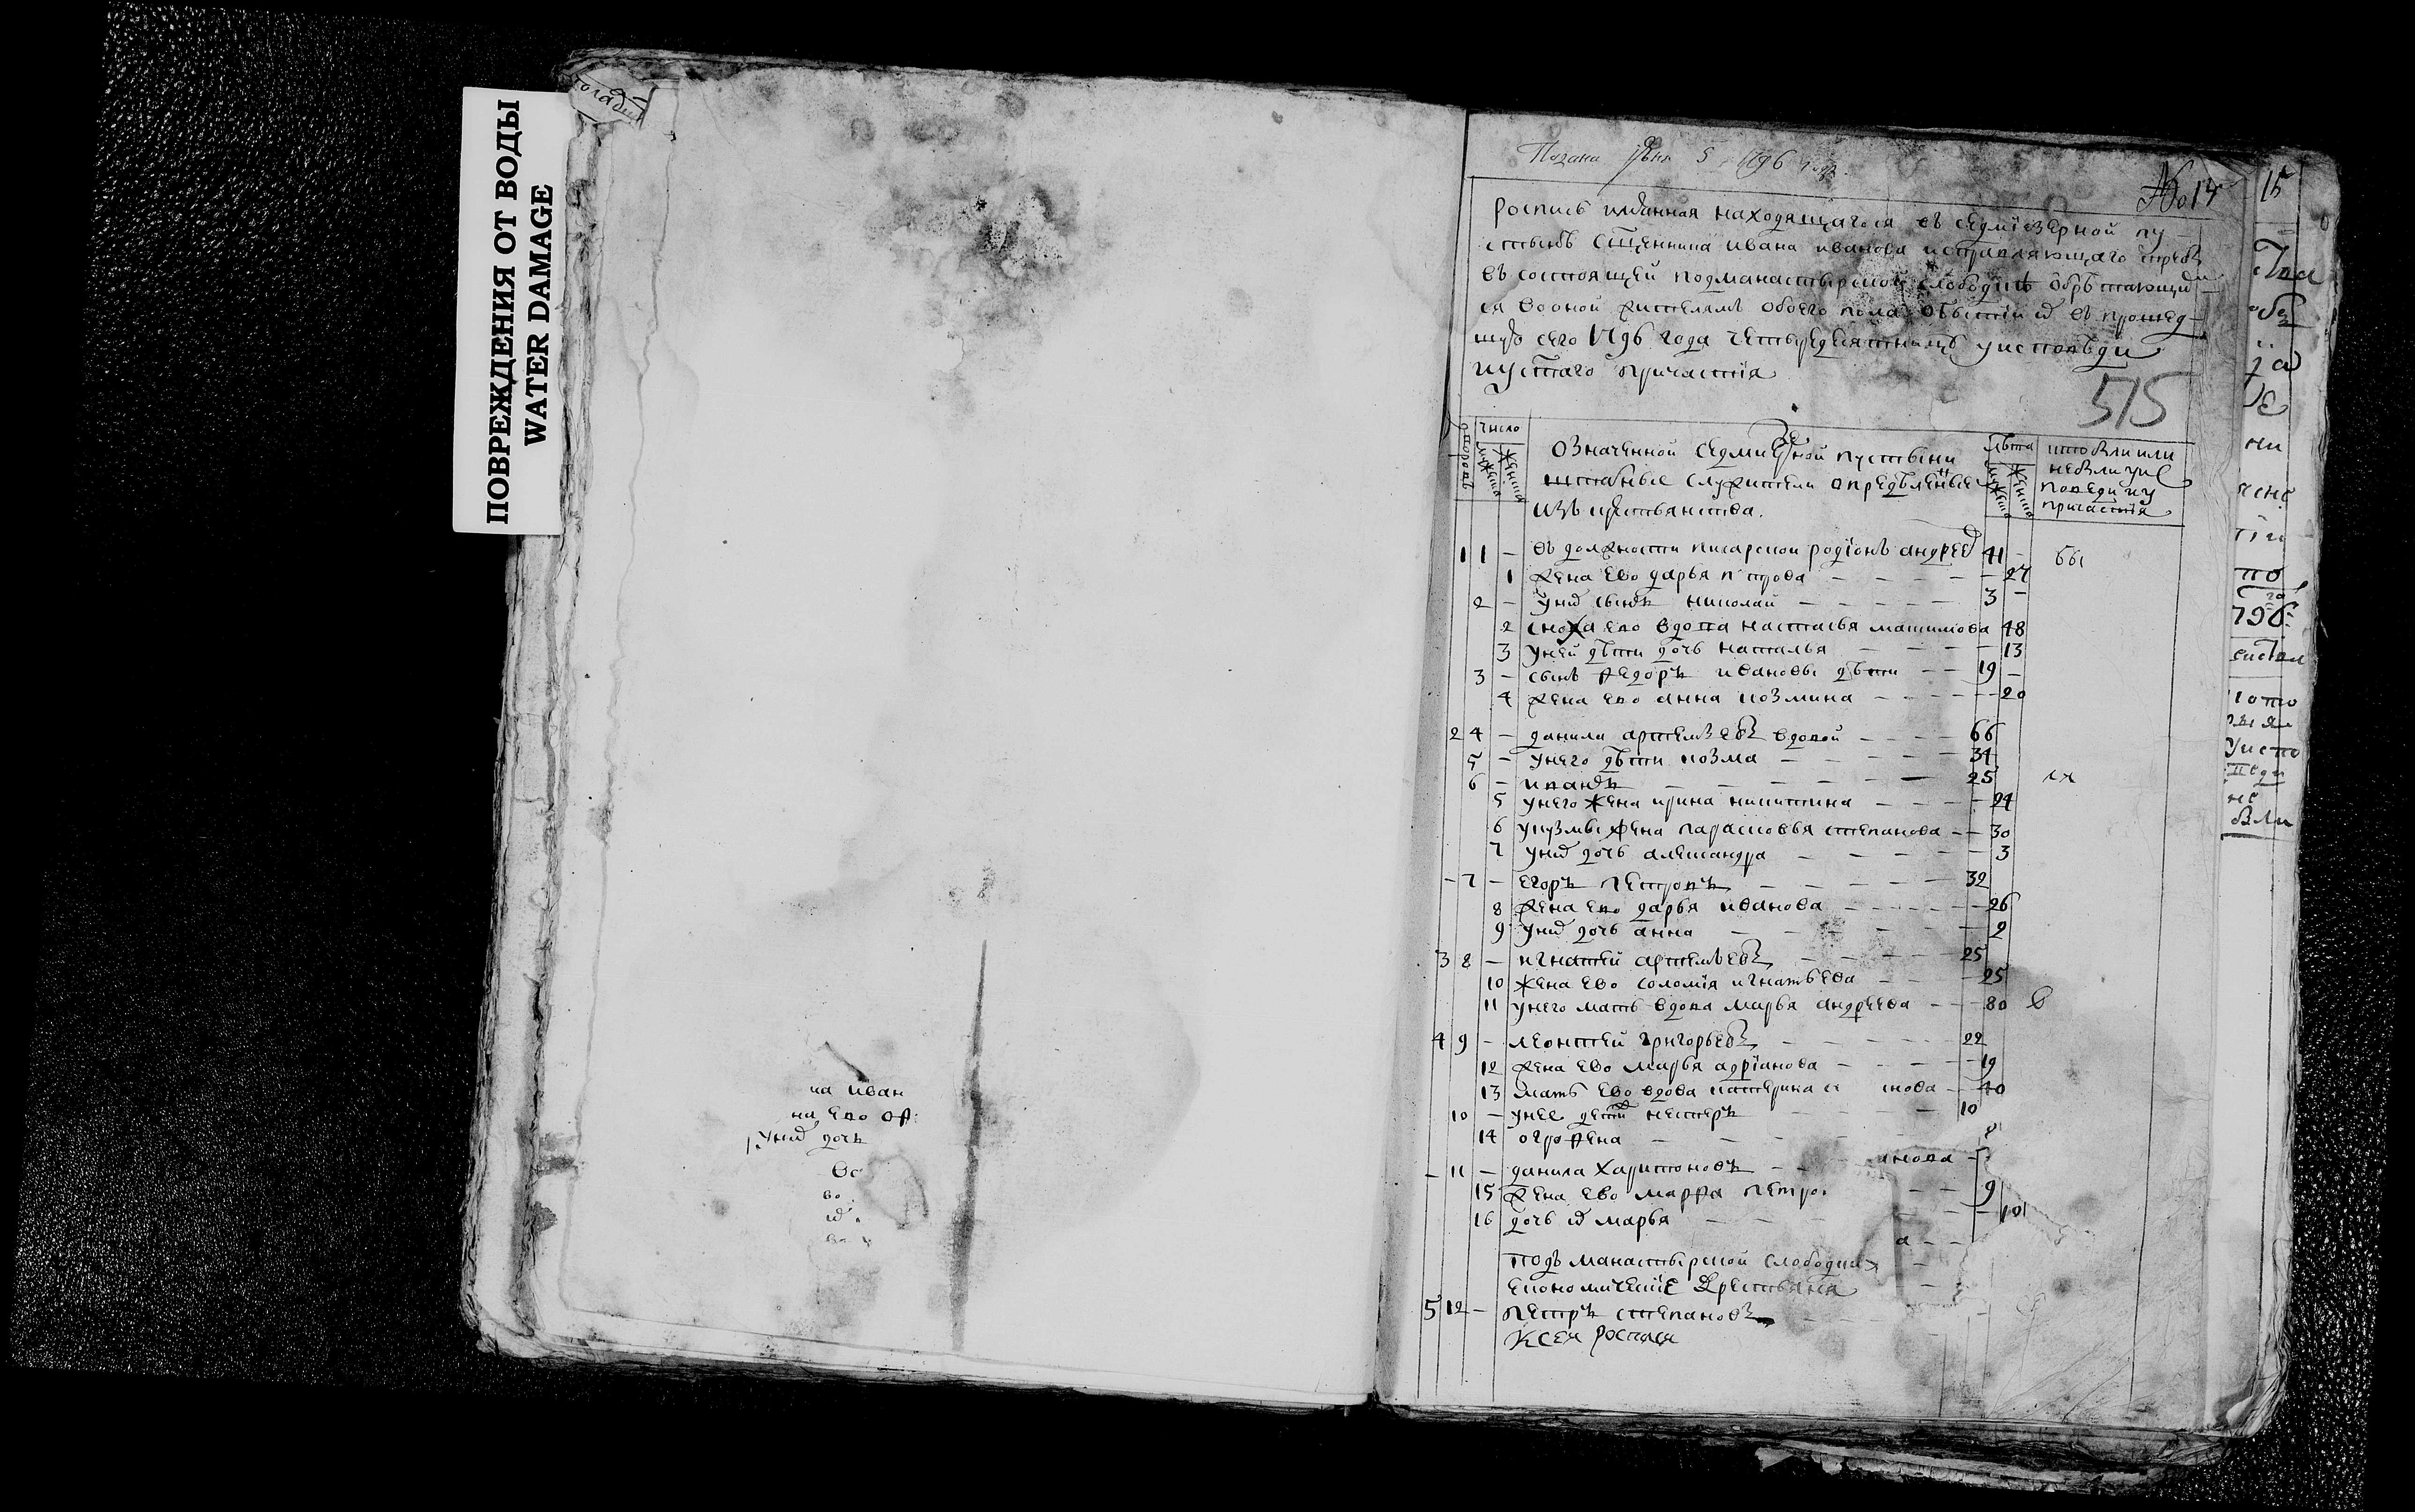 ПОВРЕЖДЕНИЯ ОТ ВОДЫ
WATER DAMAGE
Подана 5 1796 году
№ 15
роспись имянная находящагося въ седмїезерной пу
стынѣ сщенника ивана иванова исправляющаго требы
въ состоящей подманастырской слободкѣ обрѣтающи
ся воной жителямъ обоего пола въ прошед
шую сего 1796 года четыредесятницу уисповѣди
иустаго причастїя
515
число
мужеска
женска
означенной седмиезерной пустыни
штатные служители опредѣленные
изъ крестьянства.
лѣта
мужеска
женска
кто были или
небыли уис
поведи иу
причастїя
1 1 — въ должности писарской родїонъ андреев 41 — бы
1 жена ево дарья петрова 27
2 — уних сынъ николай 3 —
2 сноха ево вдова настасья максимова 48
3 уней дѣти дочь наталья 13
3 — сынъ федоръ ивановы дѣти 19 —
4 жена ево анна козмина 20
2 4 — данила артемьевъ вдовой 66
5 — унего дѣти козма 34
6 — иванъ 25
5 унего жена ирина никитина 24
6 укузмы жена парасковья степанова 30
7 уних дочь александра 3
— 7 — егоръ петровъ 32
8 жена ево дарья иванова 26
9 уних дочь анна 2
3 8 — игнатей артемьевъ 25
10 жена ево соломїя игнатьева 25
11 унего мать вдова марья андреева 80
4 9 — леонтей григорьевъ 22
12 жена ево марья адрїанова 19
13 мать ево вдова катерина 40
10 — унее дети нестеръ 10
14 огрофена 8
— 11 — данила харитоновъ
15 жена ево марфа петро
16 дочь их марья
подъ манастырской слободки
економическїе крестьяна
5 12 — петръ степановъ
Ксея росписи
на иван
на ево
уних дочь
15